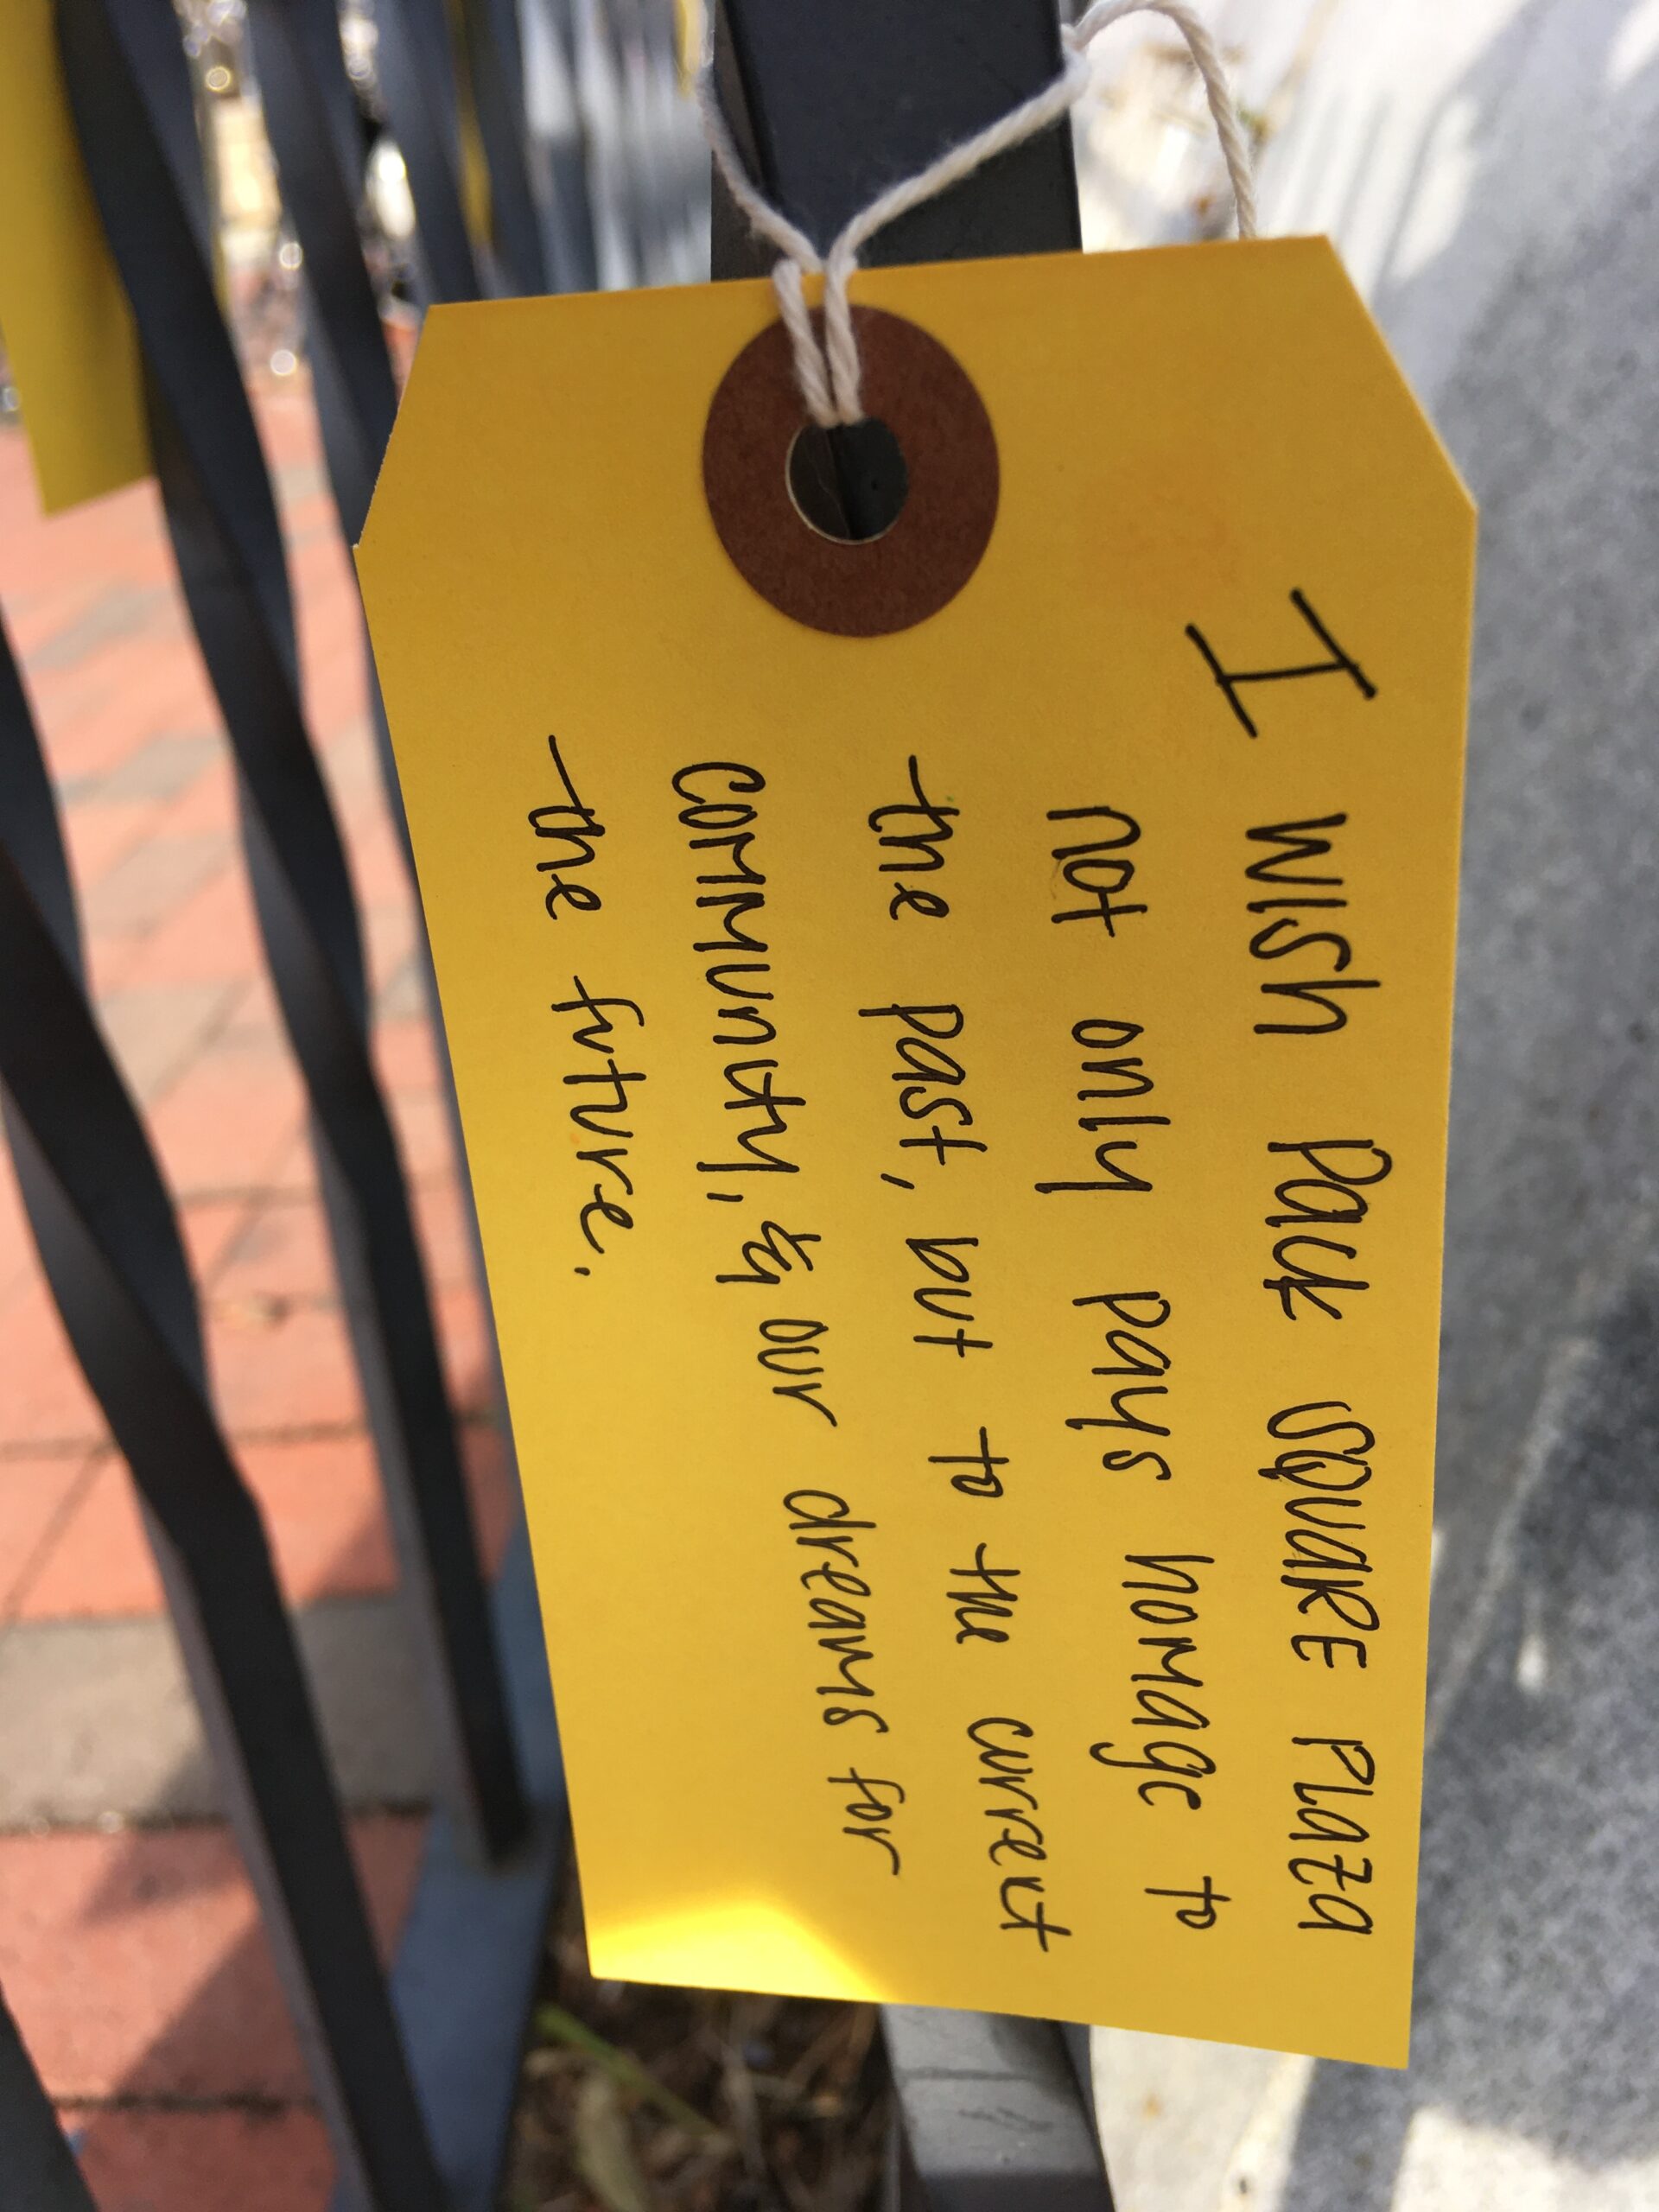 I WISH PACK SQUARE PLAZA
not only pays homage to
the past, but to the current
community, & our dreams for
the future.